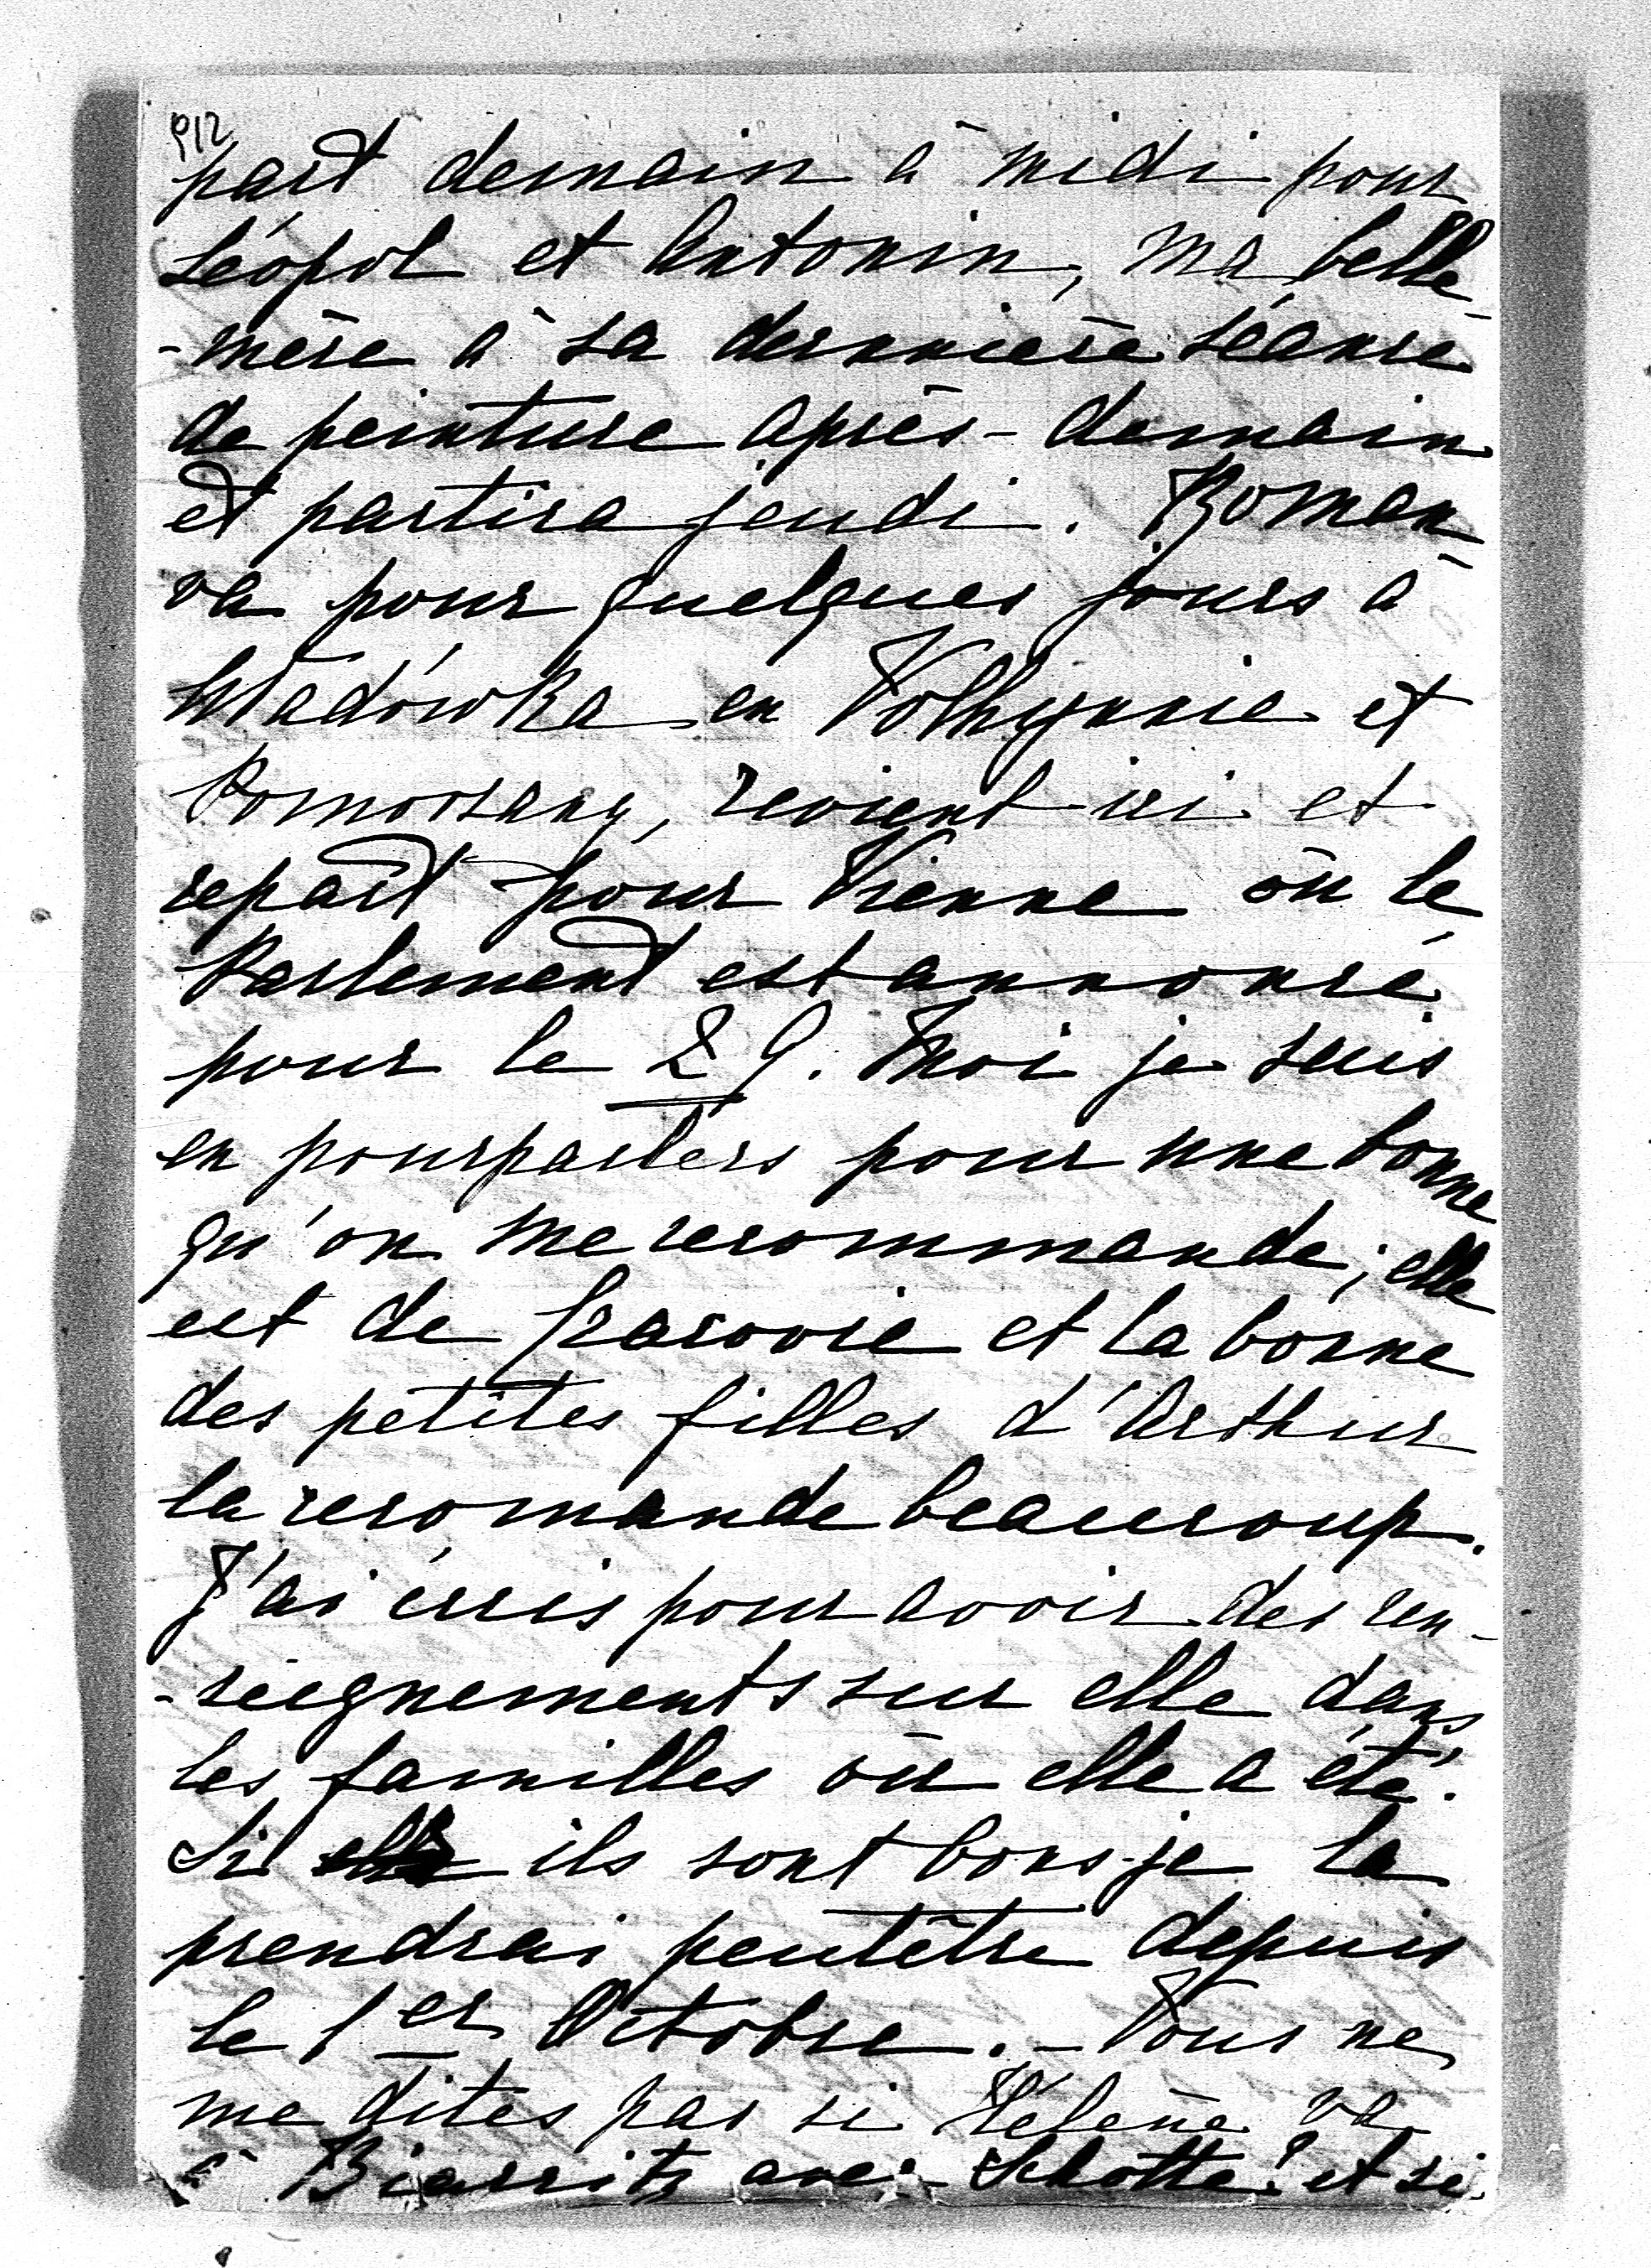 912
part demain à midi pour
Léopol et Antonin, ma belle-
-mère à sa dernnière séance
de peinture après-demain
et partira jeudi. Roman
va pour quelques jours à
Władówka en Volhynnie et
Pomorzany, revient ici et
repart pour Vienne où le
Parlement est annoncé
pour le 29. Moi je suis
en pourparlers pour une bonne
qu'on me recommande; elle
est de Cracovie et la bonne
des petites filles d'Arthur
la recomande beaucoup.
J'ai écris pour avoir des ren-
-seignements sur elle dans
les familles où elle a été.
Si elle ils sont bons je la
prendrai peutêtre depuis
le 1er Octobre. - Vous ne
me dites pas si Hélène va
à Biarritz avec Schotte? et si